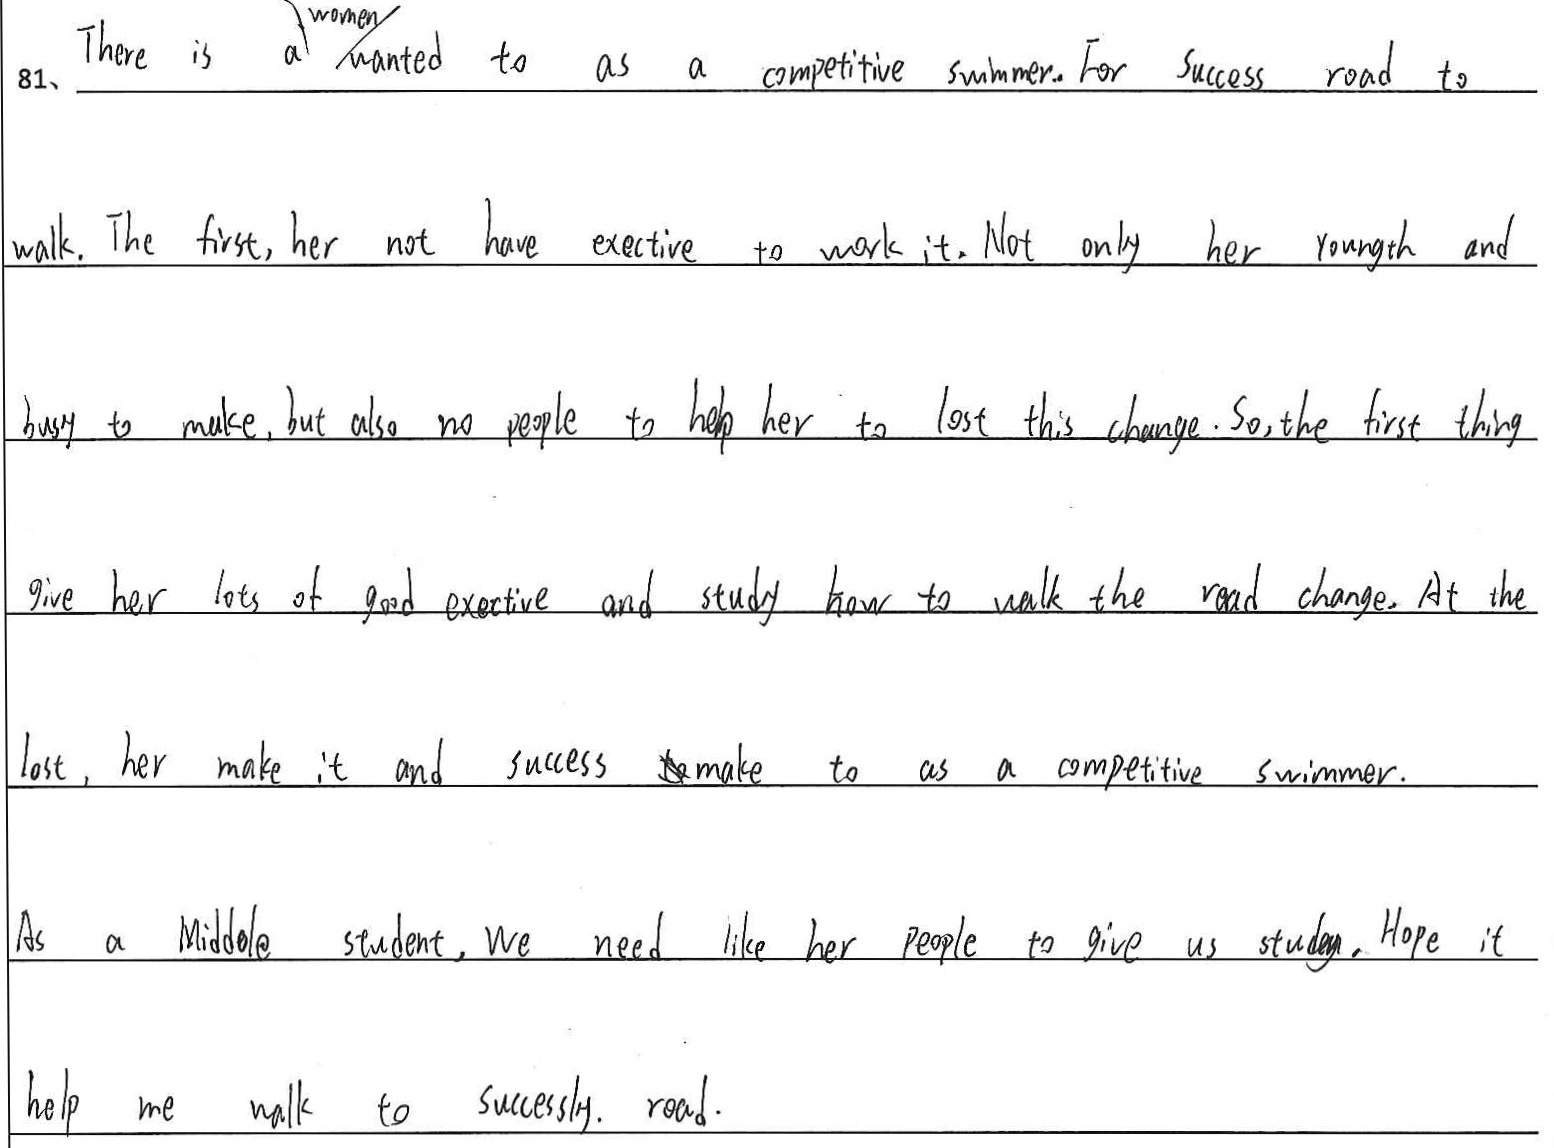 81、 There is a women wanted to as a competitive swimmer. For success road to
walk. The first, her not have exective to work it. Not only her youngth and
busy to make, but also no people to help her to lost this change. So, the first thing
give her lots of good exective and study how to walk the road change. At the
lost, her make it and success make to as a competitive swimmer.
As a Middle student, We need like her people to give us study. Hope it
help me walk to successly. road.